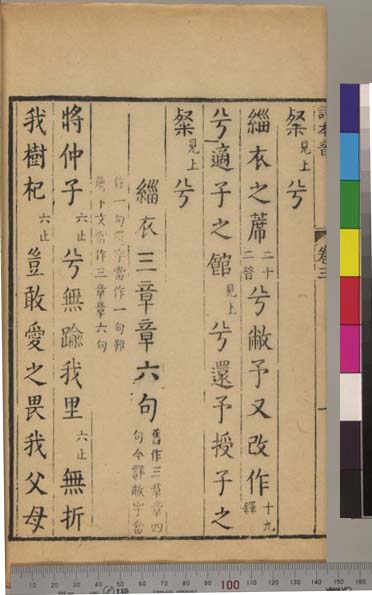 詩本音 卷三 一
粲見上兮
緇衣之蓆二十二昔兮敝予又改作十九鐸
兮適子之館見上兮還予授子之
粲見上兮
緇衣三章章六句舊作三章章四句今詳敝字當
作一句還字當作一句難下文當作三章章六句
將仲子六止兮無踰我里六止無折
我樹杞六止豈敢愛之畏我父母
10 20 30 40 50 60 70 80 90 100 110 120 130 140 150 160